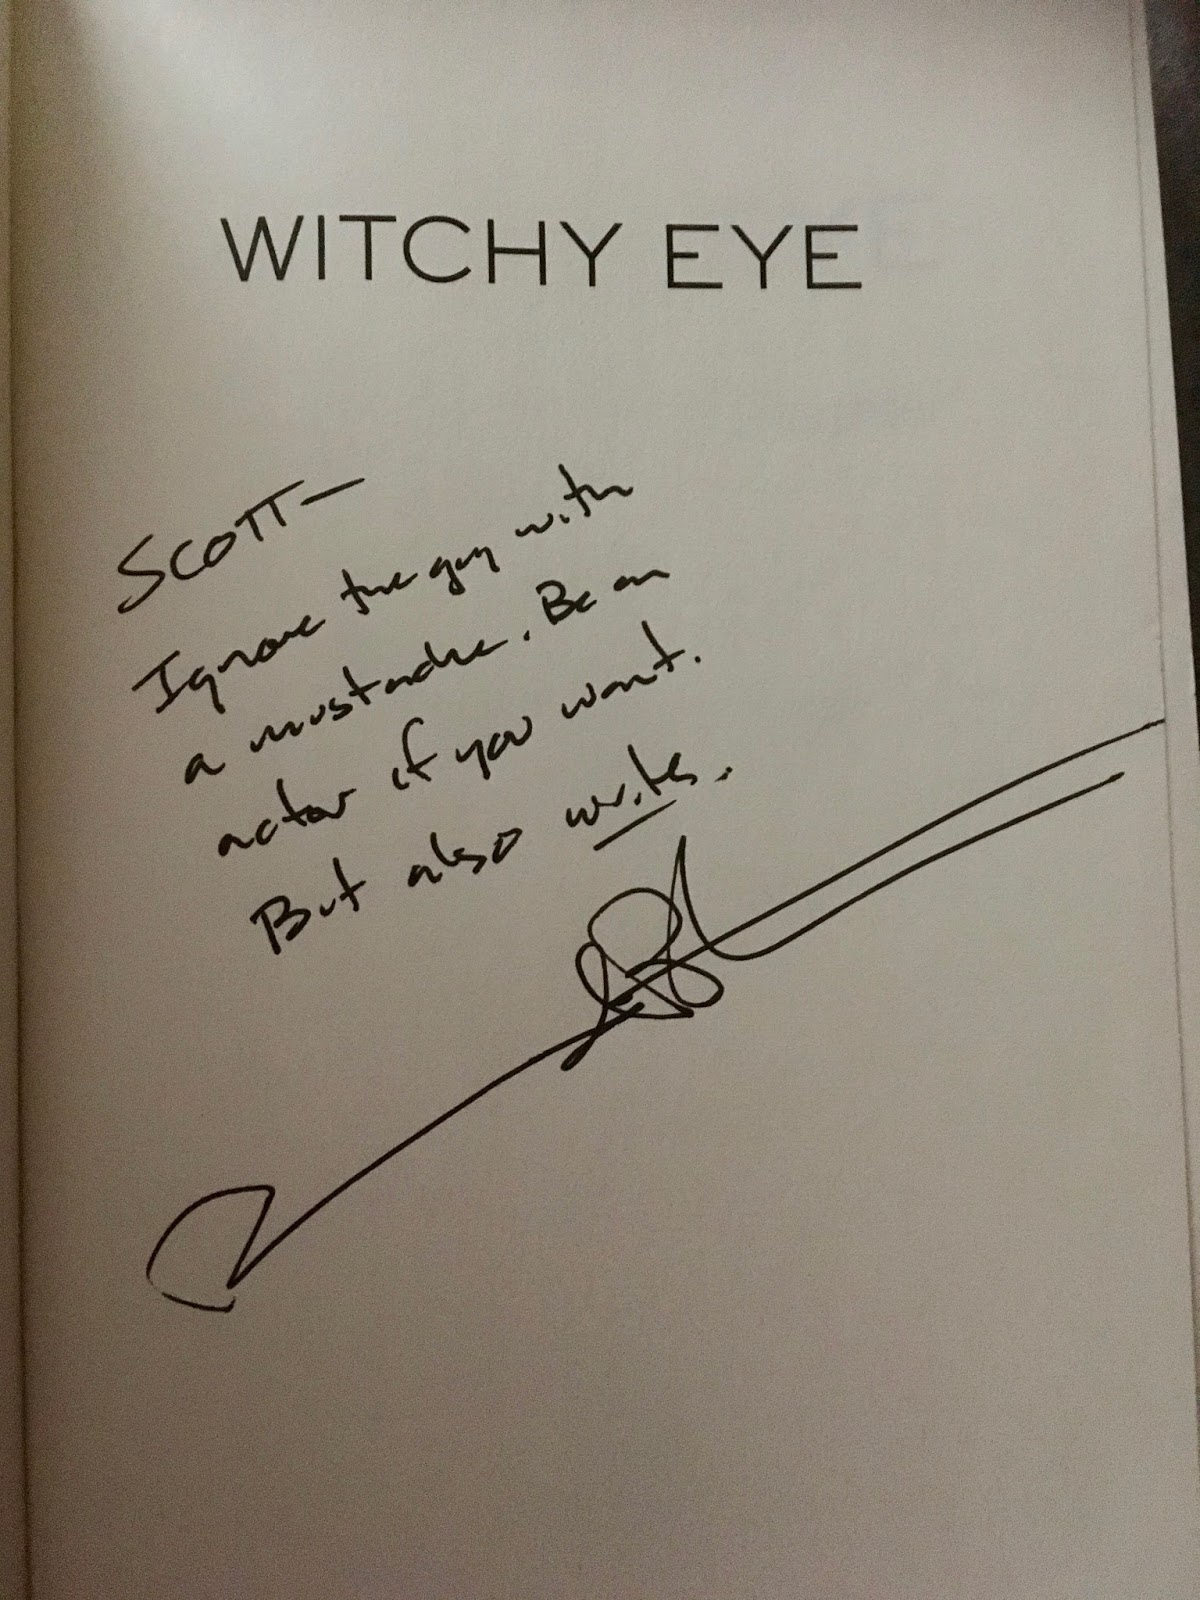 WITCHY EYE
SCOTT—
Ignore the guy with
a mustache. Be an
actor if you want.
But also write.